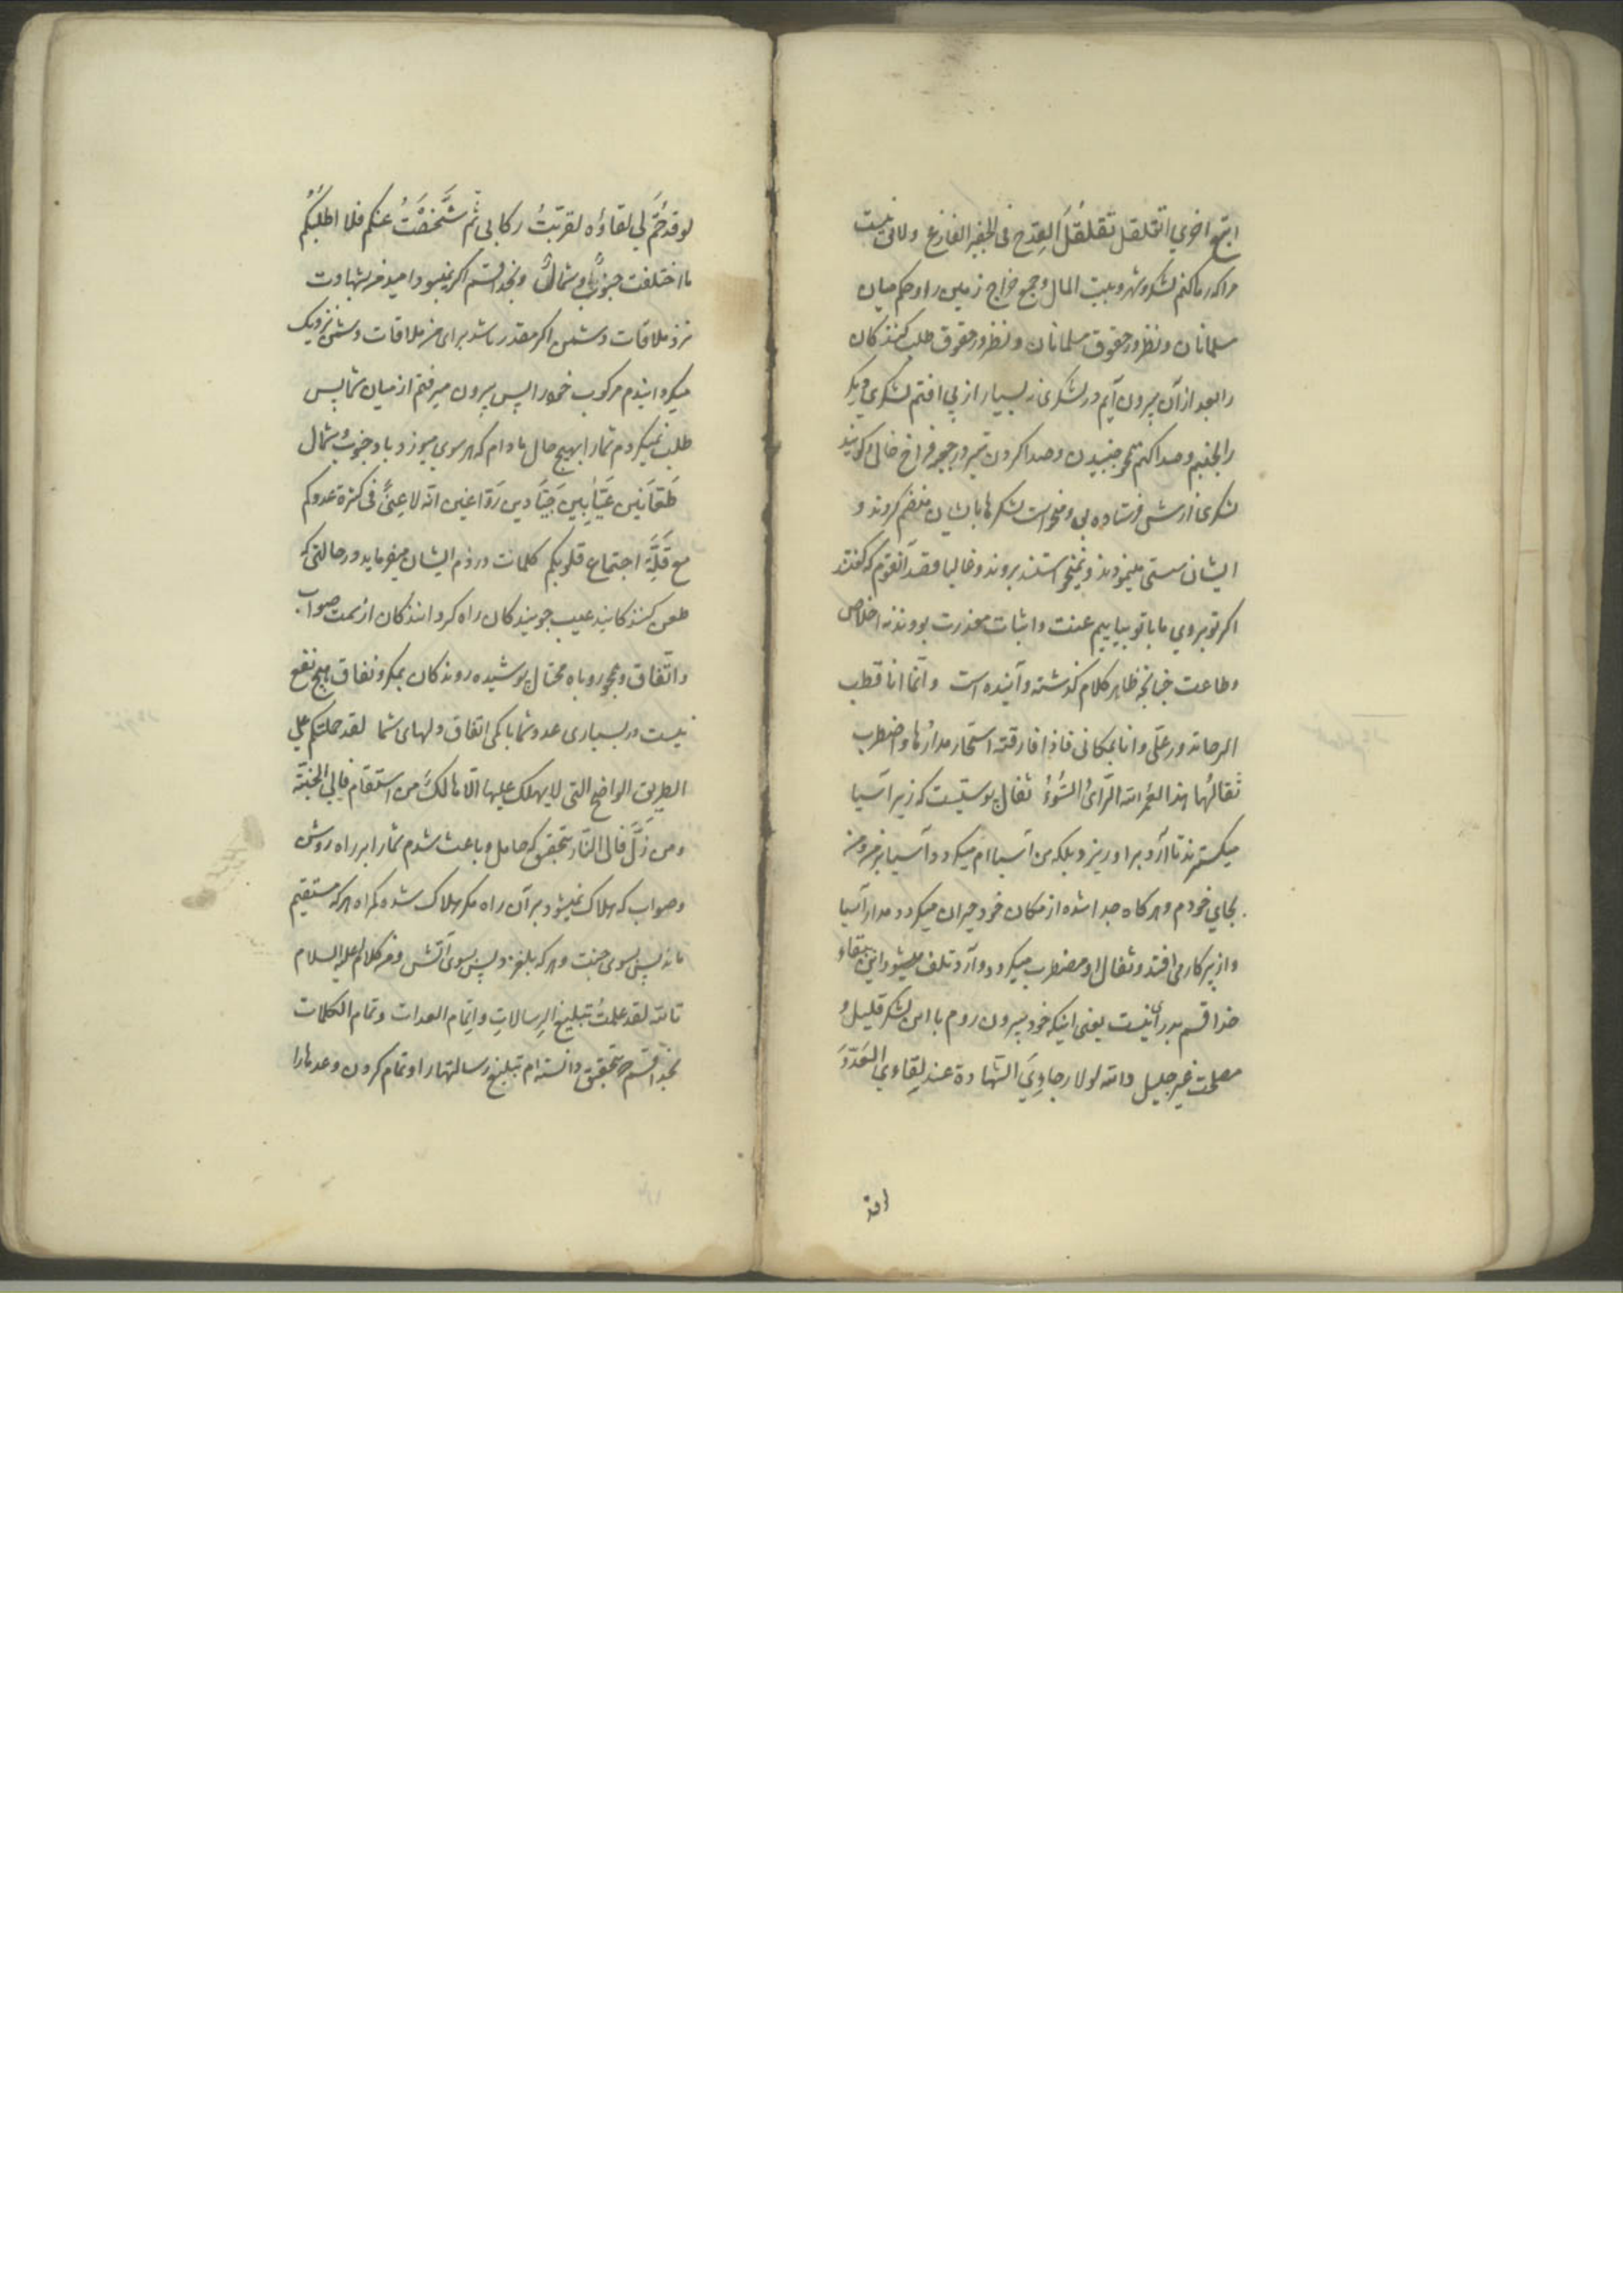 اتبع اخری اتقلقل تقلقُلَ القِدح فی الجفیر الفارغ ولایق نیست
مرا که رها کنم لشکر و شهر و بیت المال و جمع خراج زمین را و حکم میان
مسلمانان و نظر در حقوق مسلمانان و نظر در حقوق طلب کنندکان
را بعد از آن بیرون آیم در لشکری نه بسیار از پی افتم لشکری دیکر
را بجنبم و صدا کنم نحو جنبیدن و صدا کردن تیر در جعبه فراخ خالی کویند
لشکری از پیش فرستاده بود و میخواست لشکرها بایشان منضم کردند و
ایشان سستی مینمودند و نمیخواستند بروند و غالبا قصد آنقوم که کفتند
اکر تو بروی ما با تو بیاییم عنت و اثبات معذرت بود نه اخلاص
وطاعت چنانچه ظاهر کلام کذشته و آینده است وانّما انا قطب
الرحا تدور علّی وانا بمکانی فاذا فارقته استحار مدارُها واضطرب
ثقالُها هذا لعمر الله الرّایُ السُّوءُ ثفال پوستیست که زیر آسیا
میکسترند تا آرد بر او ریزد بلکه من آسیاام میکردد آسیا بر من و من
بجای خودم و هر کاه جدا شده از مکان خود حیران میکردد مدار آسیا
و از پرکار می افتد و ثفال او مضطرب میکردد و آرد تلف میشود این ببقاء
خدا قسم بد رایُ نیست یعنی اینکه خود بیرون روم با این لشکر قلیل و
مصلحت غیر جلیل والله لولا رجاوِیَ الشّهادة عند لِقاوی العَدوَّ
لو قد
لو قد حُمَّ لی لقاؤه لقرّبتُ رکابی ثم شَخَصْتُ عنکم فلا اطلبُکُم
ما اختلفت جنوبٌ و شمالٌ و بخدا قسم اکر نمیبود امید من بشهادت
نزد ملاقات دشمن اکر مقدر باشد برای من ملاقات دشمن نزدیک
میکردانیدم مرکوب خود را پس بیرون میرفتم از میان شما پس
طلب نمیکردم شما را بهیچ حال مادام که هر سوی میوزد باد جنوب و شمال
طَعّانین عَیّابین حَیّادین رَوّاغین انّه لا غِنیً فی کثرة عددکم
مع قِلَّةِ اجتماع قلوبکم کلمات در ذم ایشان میفرماید در حالتی که
طعن کنندکانید عیب جویندکان راه کردانندکان از سمت صواب
و اتّفاق و همچو روباه محتال پوشیده روندکان بمکر و نفاق هیچ نفع
نیست در بسیاری عدد شما با کمی اتفاق دلهای شما لقد حملتکم علی
الطریق الواضح التی لا یهلک علیها الّا هالکٌ من استقام فالی الجنّة
و من زَلَّ فالی النّار بتحقیق که حامل و باعث شدم شما را بر راه روشن
و صواب که هلاک نمیشود بر آن راه مکر هلاک شده کمراه هر که مستقیم
ماند پس بسوی جنت و هر که بلغزد پس بسوی آتش و من کلام له علیه السلام
تالله لقد علمتُ تبلیغ الرِسالاتِ و اِتِمام العِدات و تمام الکلمات
بخدا قسم بتحقیق دانسته ام تبلیغ رسالتها را و تمام کردن وعدها را